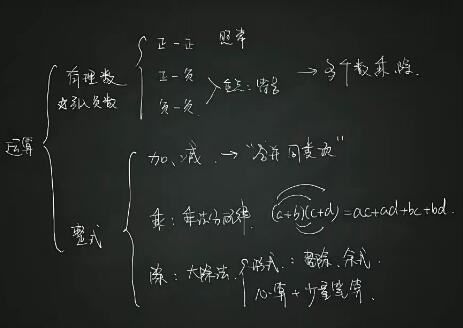 正-正 照常
有理数 正-负 重点：符号 → 多个数乘除.
☆引入负数 负-负
运算
加、减 → "合并同类项"
整式 乘：乘法分配律 (a+b)(c+d)=ac+ad+bc+bd.
除：大除法 形式：整除、余式.
心算+少量笔算.